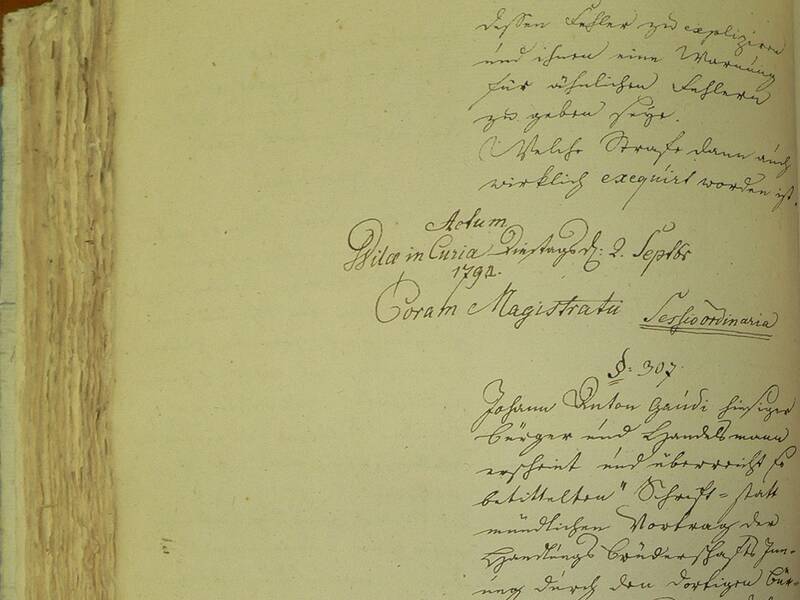 dessen Fehler zu expliziren
und ihnen eine Warnung
für ähnlichen Fehlern
zu geben seye.
Welche Strafe dann auch
wirklich exequirt worden ist.
Actum
Vilæ in Curia Dienstags d: 2. Septbr
1794.
Coram Magistratu Sessio ordinaria
§: 307.
Johann Anton Gaudi hiesiger
bürger und Handelsmann
erscheint und überreicht
betittelten " Schrift = statt
mündlichen Vortrag der
Handlungs brüderschafts Inn-
ung durch den dortigen bür-